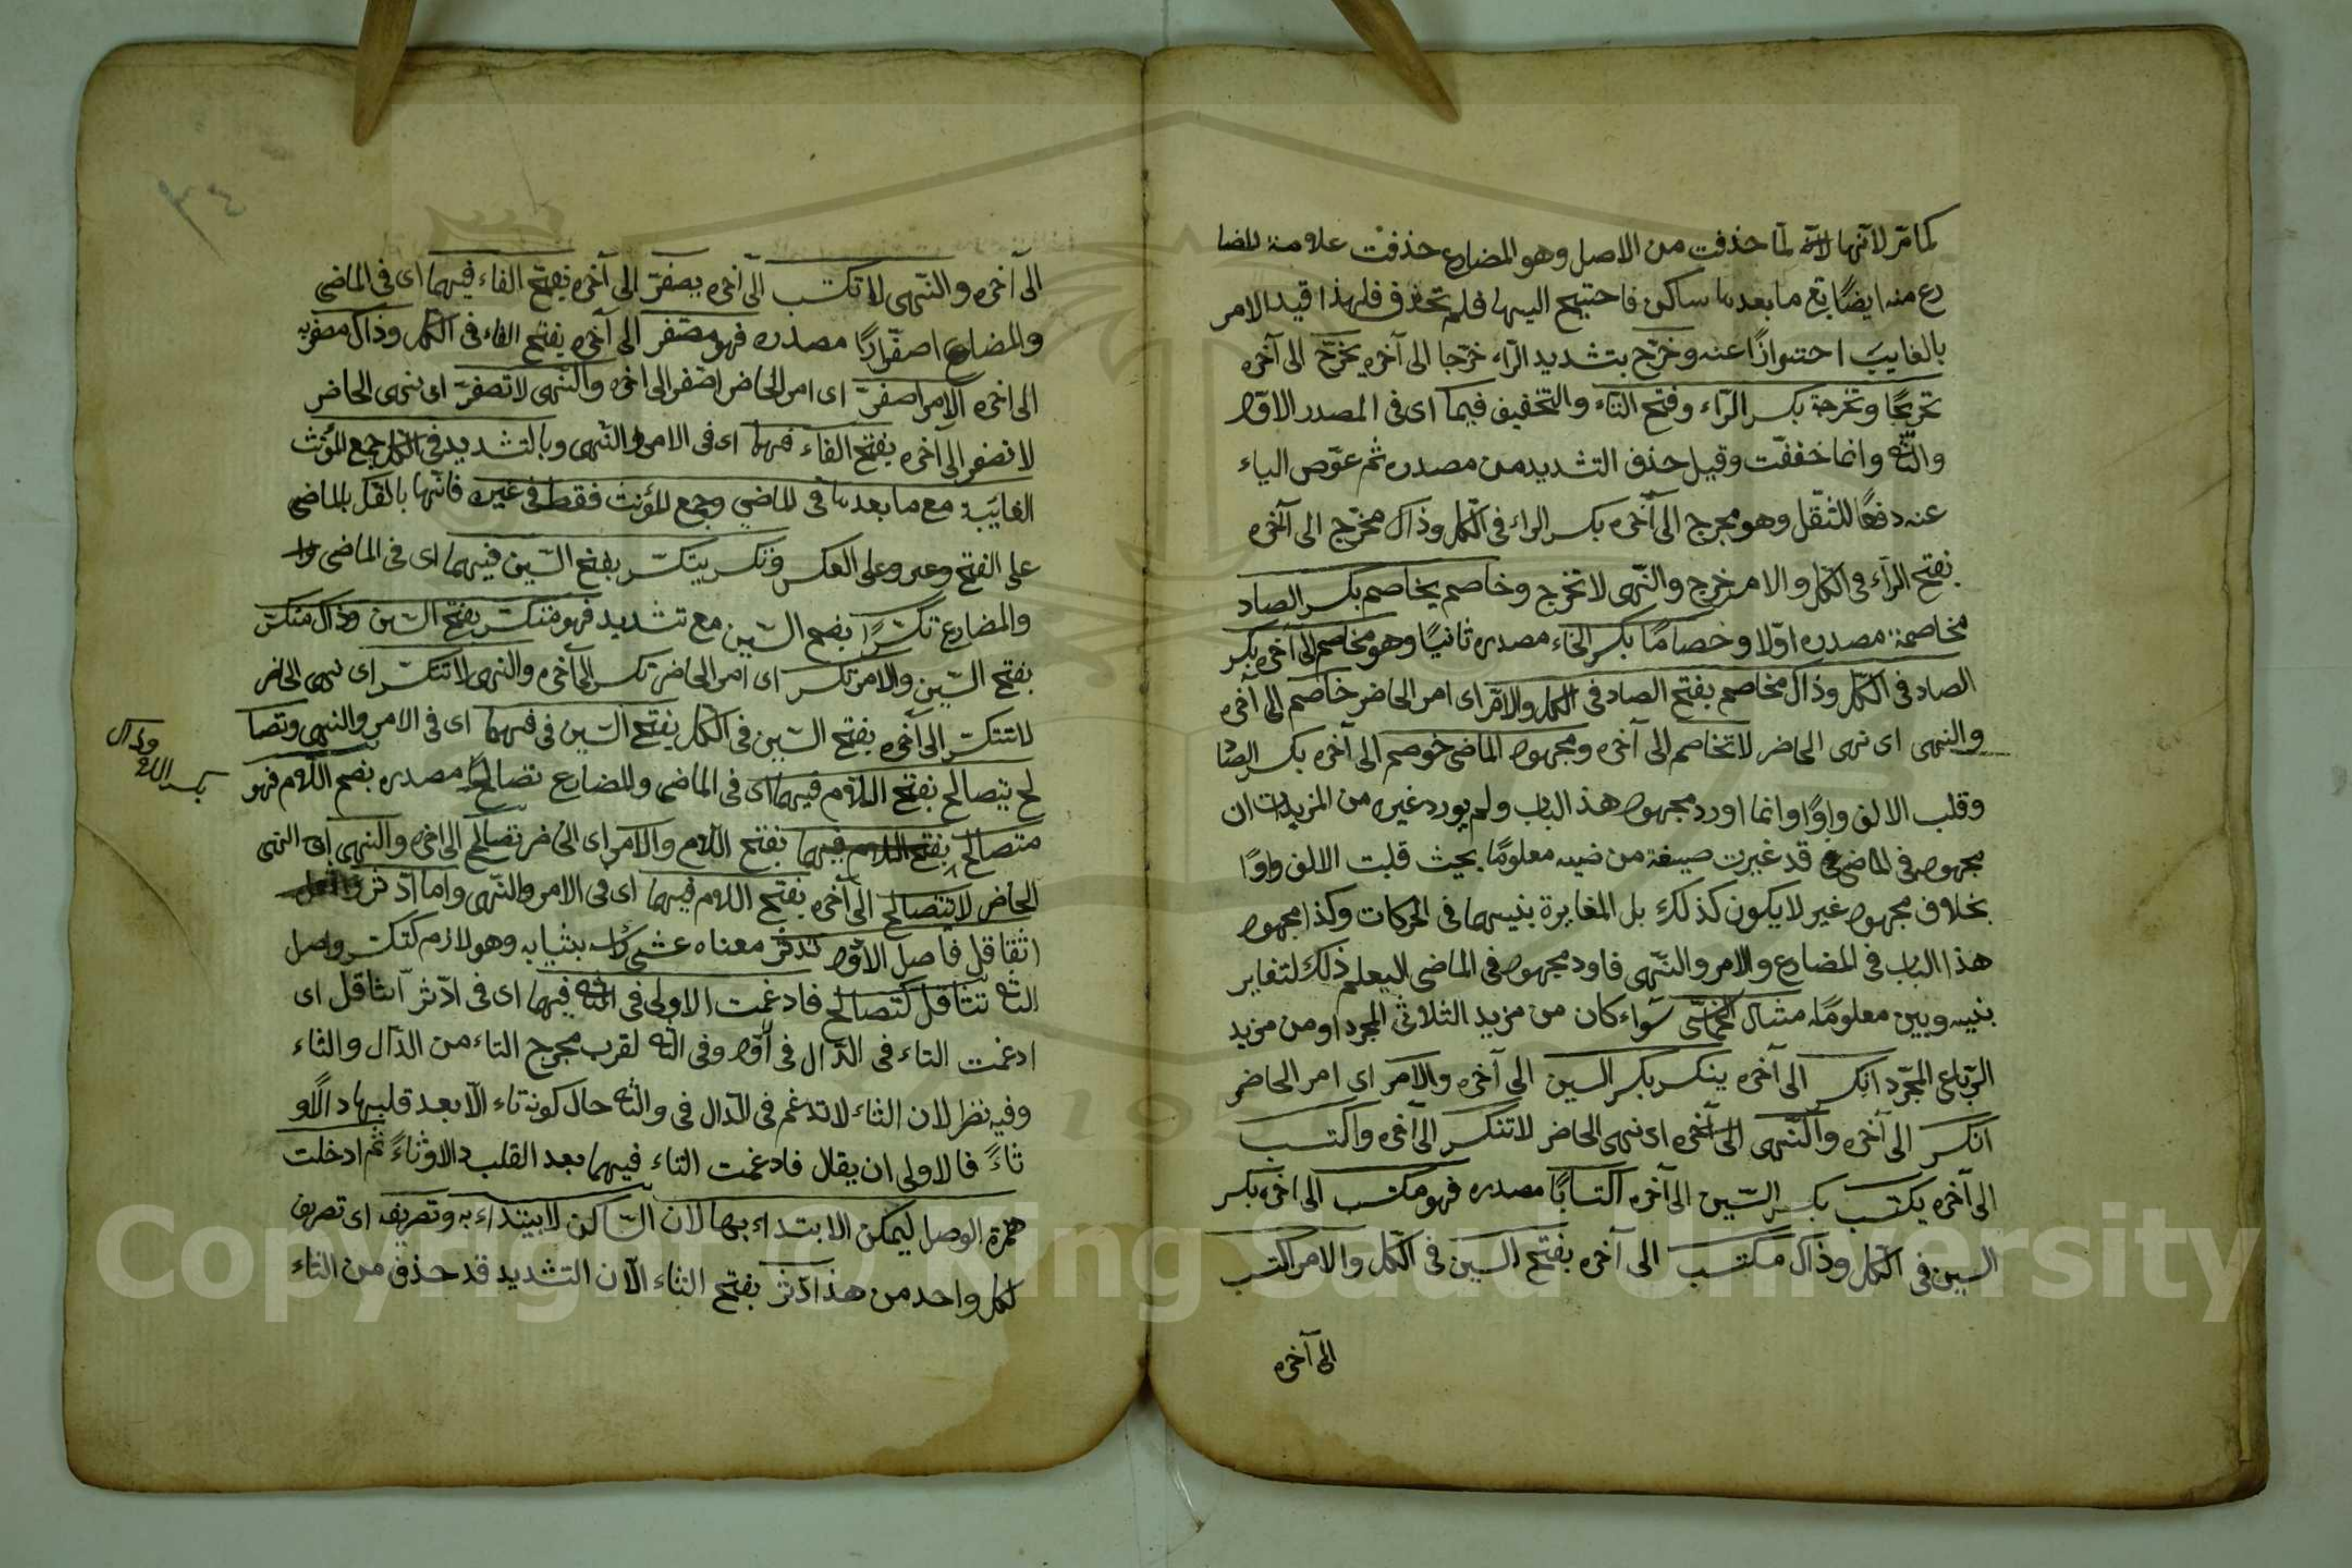 كما مرّ لانّها لانّه لمّا حذفت من الاصل وهو المضارع حذفت علامة المضا
رع منه ايضًا بقى ما بعدها ساكن فاحتيج اليها فلم تحذف فلهذا قيد الامر
بالغايب احترازًا عنه وخرّج بتشديد الرّاء خرّجا الى آخره يخرّج الى آخره
تخريجًا وتخرجة بكسر الرّاء وفتح التاء والتخفيف فيهما اى فى المصدر الاوّل
والثّانى وانما خففت وقيل حذف التشديد من مصدره ثم عوّض الياء
عنه دفعًا للثقل وهو مخرج الى آخره بكسر الراء فى الكل وذاك مخرّج الى آخره
بفتح الرّاء فى الكل والامر خرج والنّهى لا تخرج وخاصم يخاصم بكسر الصاد
مخاصمة مصدره اوّلا وخصامًا بكسر الخاء مصدره ثانيًا وهو مخاصم الى آخره بكسر
الصاد فى الكل وذاك مخاصم بفتح الصاد فى الكل والامر اى امر الحاضر خاصم الى آخره
والنهى اى نهى الحاضر لا تخاصم الى آخره ومجهول الماضى خوصم الى آخره بكسر الصاد
وقلب الالف واوًا وانما اورد مجهول هذ الباب ولم يورد غيره من المزيدات ان
مجهول فى الماضى قد غيرت صيغة من معلومًا بحيث قلبت الالف واوًا
بخلاف مجهول غير لا يكون كذلك بل المغايرة بينهما فى الحركات وكذا مجهول
هذا الباب فى المضارع والامر والنّهى فاورد مجهول فى الماضى ليعلم ذلك لتغاير
بينه وبين معلومًا مثال الخماسى سواء كان من مزيد الثلاثى المجرد او من مزيد
الرّباعى المجرّد انكسر الى آخره ينكسر بكسر السين الى آخره والامر اى امر الحاضر
انكسر الى آخره والنّهى الى آخره اى نهى الحاضر لا تنكسر الى آخره واكتسب
الى آخره يكتسب بكسر السّين الى آخره اكتسابًا مصدره فهو مكتسب الى اخره بكسر
السين فى الكل وذاك مكتسب الى آخره بفتح السين فى الكل والامر اكتسب
الى آخره
الى آخره والنّهى لا تكتسب الى آخره يصفرّ الى آخره بفتح الفاء فيهما اى فى الماضى
والمضارع اصفرارًا مصدره فهو مصفر الى آخره بفتح الفاء فى الكل وذاك مصفر به
الى اخره الامر اصفرّ اى امر الحاضر اصفر الى اخره والنّهى لا تصفرّ اى نهى الحاضر
لا تصفر الى آخره بفتح الفاء فيهما اى فى الامر والنّهى وبالتشديد فى الكل جمع المؤنث
الغايبة مع ما بعدها فى الماضى وجمع المؤنث فقط فى غيره فانّها بالفك بالماضى
على الفتح وعلى العكس وتكسر يتكسّر بفتح السّين فيهما اى فى الماضى
والمضارع تكسّرًا بضم السّين مع تشديد فهو متكسّر بفتح السّين وذاك متكسّر
بفتح السّين والامر تكسر اى امر الحاضر تكسر الى آخره والنهى لا تتكسّر اى نهى الحاضر
لا تتكسّر الى آخره بفتح السّين فى الكل بفتح السّين فى فيهما اى فى الامر والنهى وتصا
لح يتصالح بفتح اللام فيهما اى فى الماضى والمضارع تصالحًا مصدره بضم اللام فهو
متصالح بفتح اللام فيهما بفتح اللام والامر اى الحاضر تصالح الى اخره والنهى اى النهى
الحاضر لا تتصالح الى آخره بفتح اللام فيهما اى فى الامر والنّهى واما ادّثر
اثّاقل فاصل الاوّل تدثر معناه بثيابه وهو لازم كتكسّر واصل
الثانى تثاقل كتصالح فادغمت الاولى فى الثانى فيهما اى فى ادّثر اثّاقل اى
ادغمت التاء فى الدّال فى اوّل وفى الثانى لقرب مخرج التاء من الدّال والثاء
وفيه نظر لان الثاء لا تدغم فى الدّال فى والثانى حال كونه تاء الّا بعد قلبها دالًا و
ثاءً فالاولى ان يقال فادغمت التاء فيهما بعد القلب دالا وثاءً ثم ادخلت
همزة الوصل ليمكن الابتداء بها لان السّاكن لا يبتداء به وتصريف اى تصريف
لكل واحد من هذ ادّثر بفتح الثاء الّا ان التشديد قد حذف من التاء
وذاك
بكسر اللام
Copyright © King Saud University